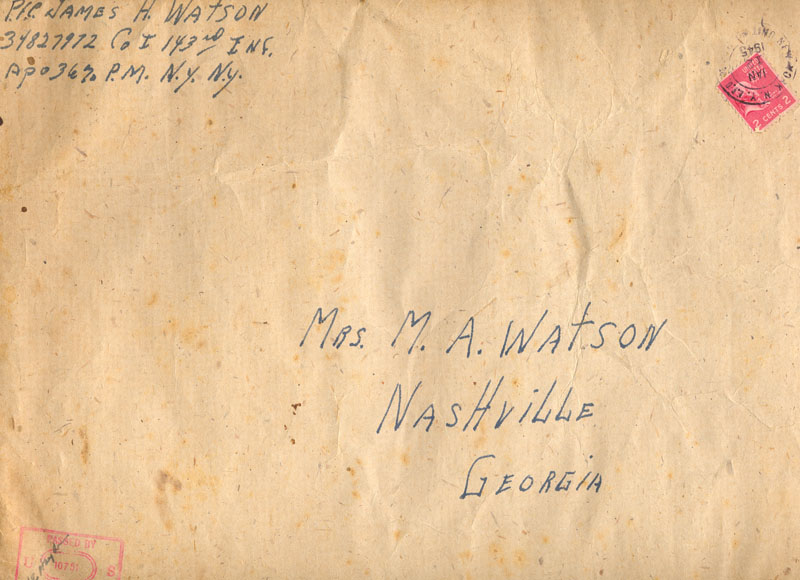 Pfc. James H. Watson
34827972 Co I 143rd Inf.
APO 36 % P.M. N.Y. N.Y.
1945
JAN
N.Y.
2 CENTS 2
Mrs. M. A. Watson
Nashville
Georgia
PASSED BY
U S
10751